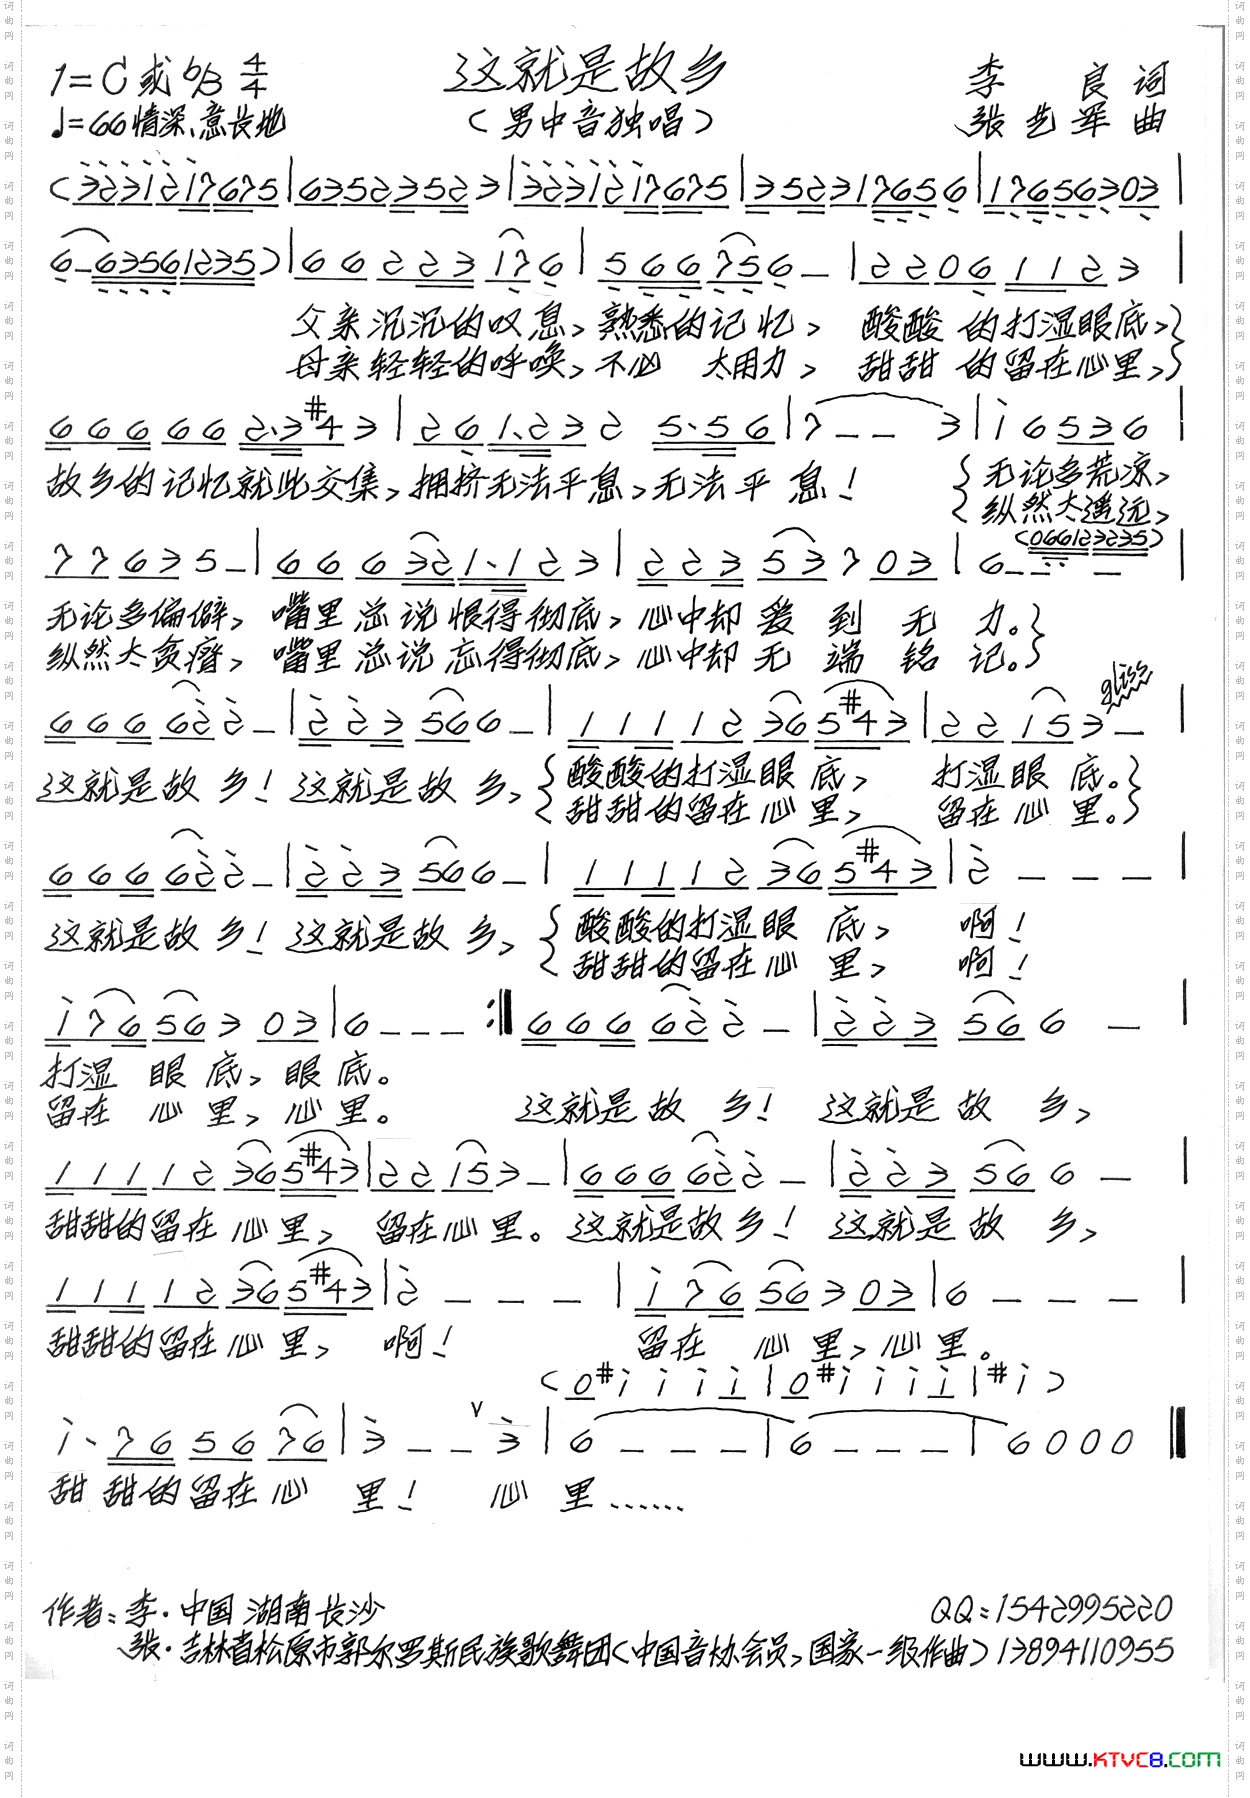 这就是故乡
1=C或♭B 4/4
♩=66 情深、意长地
（男中音独唱）
李 良 词
张艺军 曲
(3231217675|63523523|3231217675|352317656|17656303|
6-63561235)|66 223 176|566756-|2206 1123|
父亲沉沉的叹息，熟悉的记忆， 酸酸 的打湿眼底，
母亲轻轻的呼唤，不必 太用力， 甜甜 的留在心里，
66666 2·3#43|26 1·232 5·56|7--3|i6536|
故乡的记忆就此交集，拥挤无法平息，无法平 息！ 无论多荒凉，
纵然太遥远，
(066123235)
77635-|66632 1·123|223 53703|6---|
无论多偏僻， 嘴里总说恨得彻底，心中却 爱 到 无 力。
纵然太贫瘠， 嘴里总说忘得彻底，心中却 无 端 铭 记。
gliss
666622-|223566-|11112 36 5#43|22153-|
这就是故 乡！这就是故 乡， 酸酸的打湿眼 底， 打湿眼 底。
甜甜的留在心 里， 留在 心 里。
666622-|223566-|11112 36 5#43|2---|
这就是故 乡！这就是故 乡， 酸酸的打湿眼 底， 啊！
甜甜的留在心 里， 啊！
i76 563 03|6---:‖666622-|223566-|
打湿 眼 底，眼 底。
留在 心 里，心 里。 这就是故 乡！ 这就是故 乡，
11112 36 5#43|22153-|666622-|223566-|
甜甜的留在 心 里， 留在心 里。这就是故 乡！ 这就是 故 乡，
11112 36 5#43|2---|i76 563 03|6---|
甜甜的留在心 里， 啊！ 留在 心 里，心 里。
(0#iiii|0#iiii|#i)
i·765676|3--∨3|6---|6---|6000‖
甜 甜的留在心 里！ 心 里……
作者：李·中国湖南长沙 QQ：1542995220
张·吉林省松原市郭尔罗斯民族歌舞团（中国音协会员，国家一级作曲）13894110955
www.KTVC8.com
词曲网